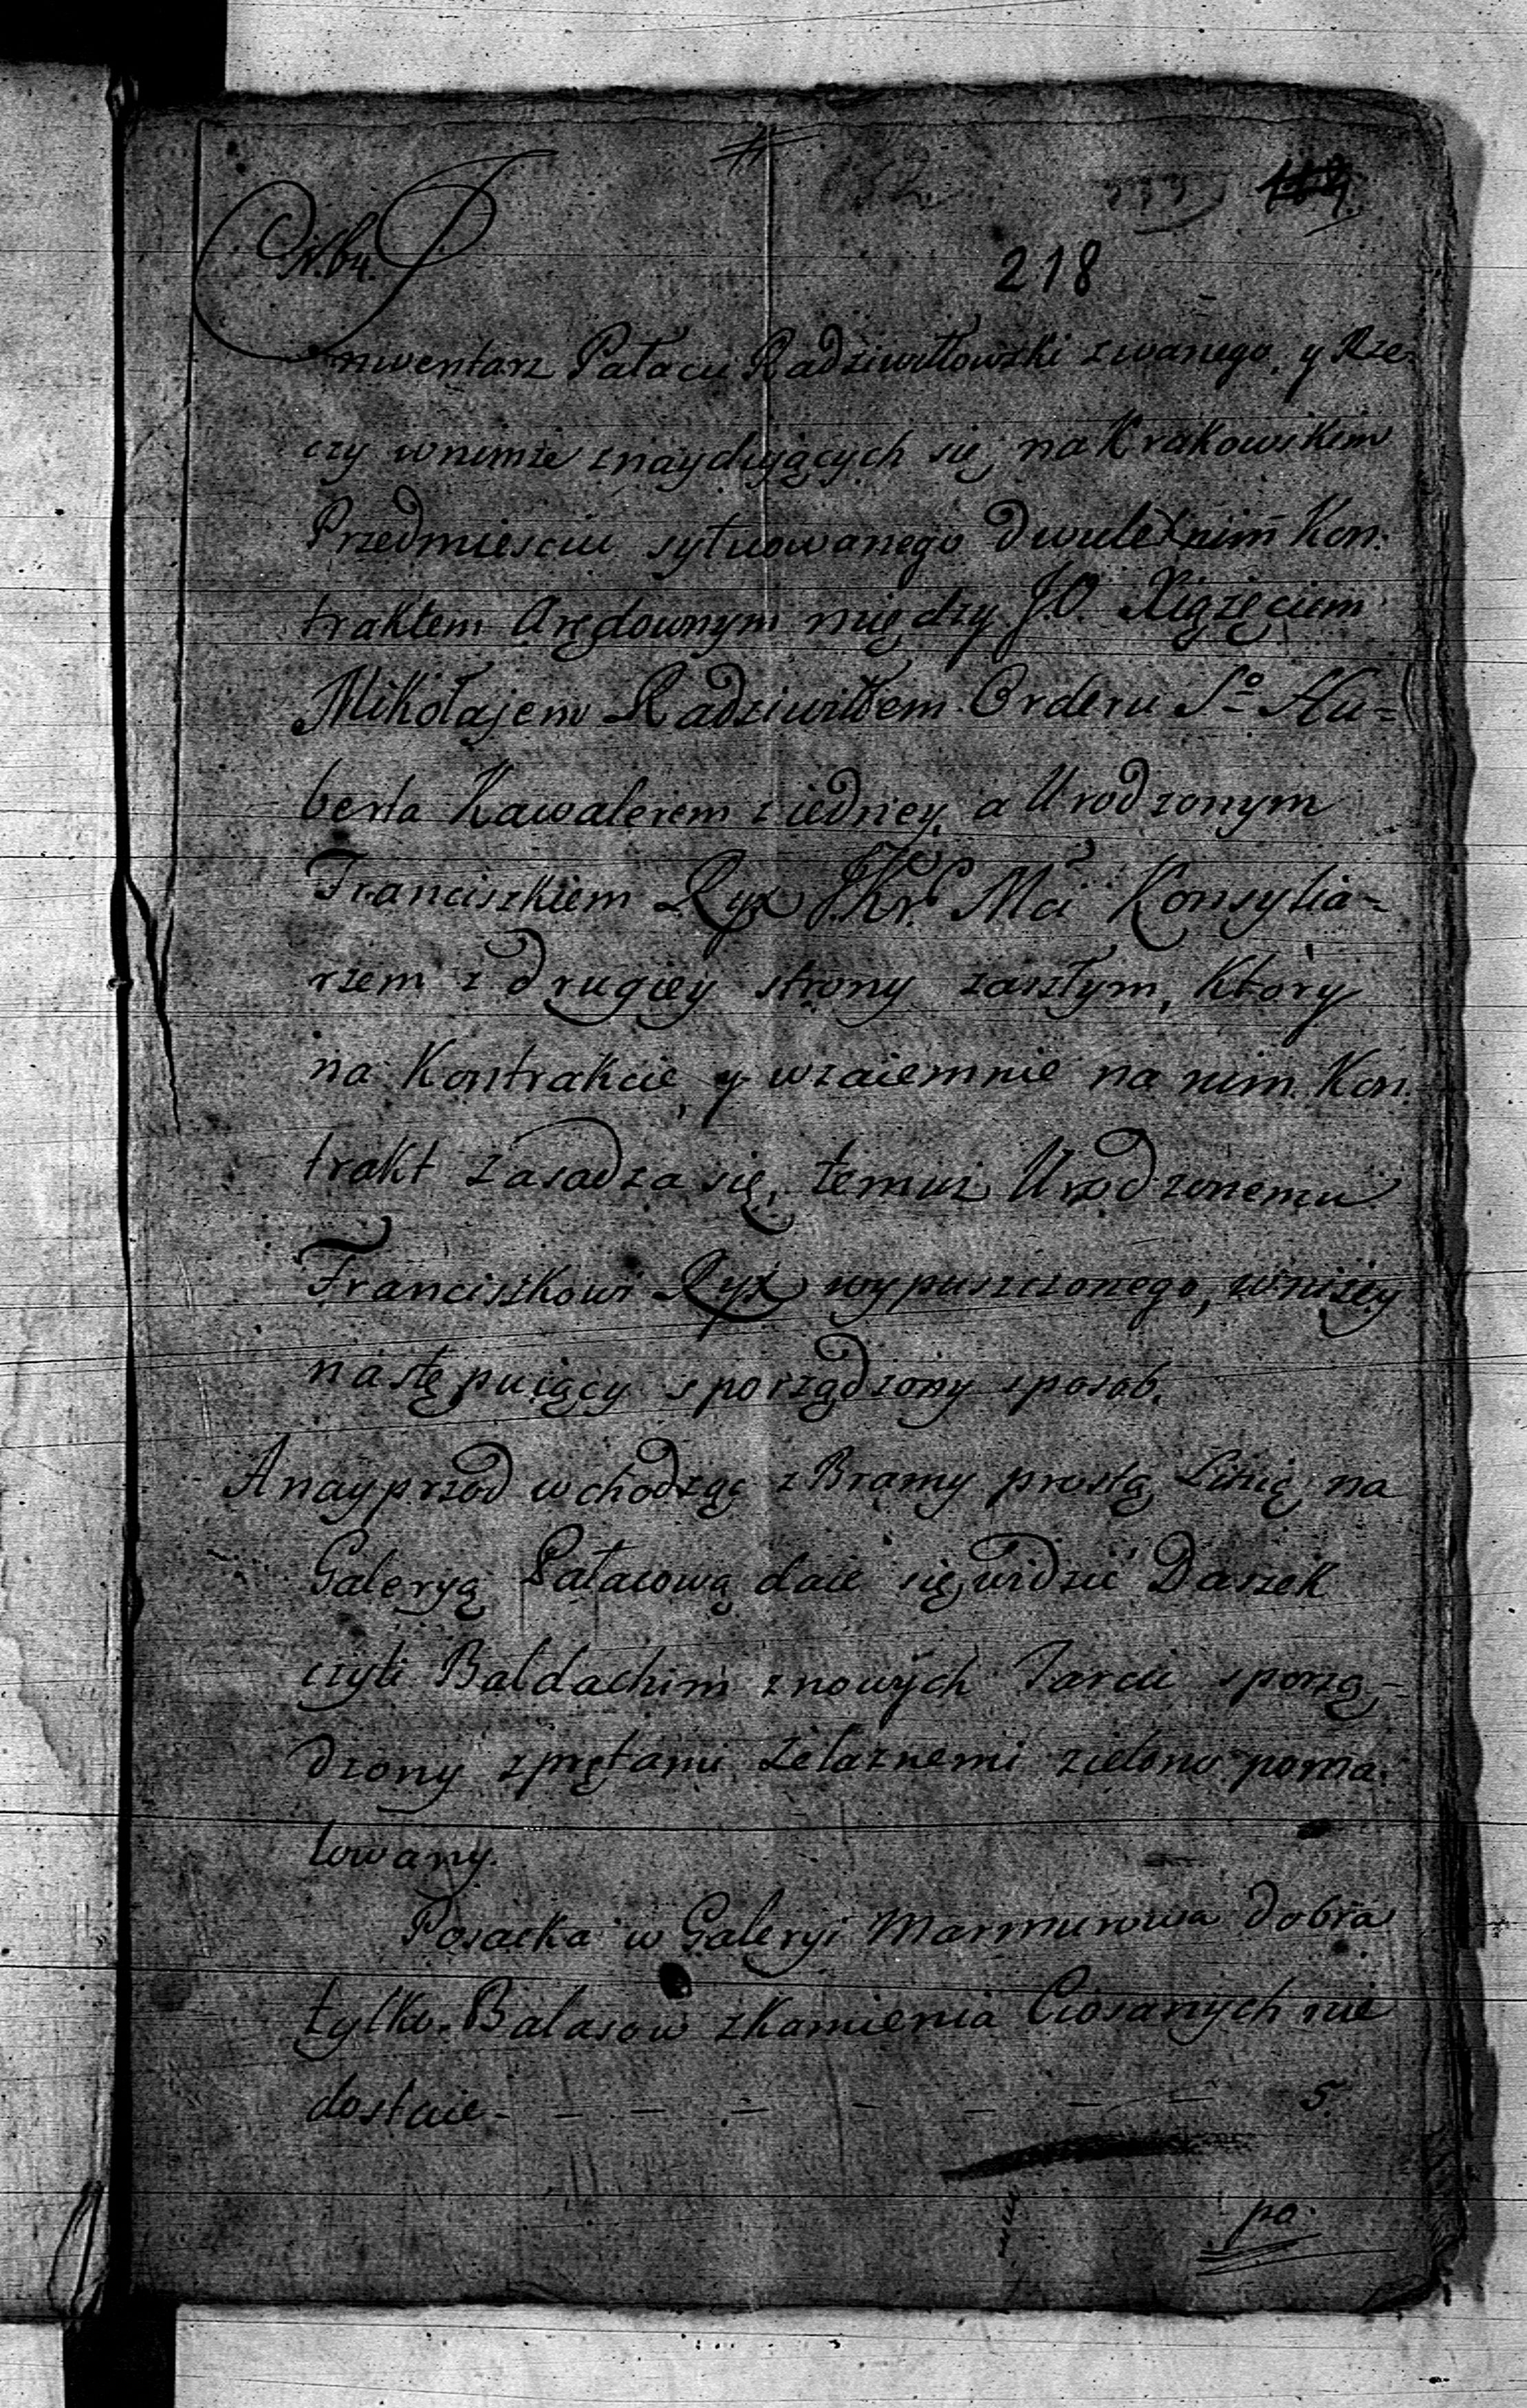 N. 64.
218
Inwentarz Pałacu Radziwiłłowski zwanego, y Rze-
czy wnimże znayduiących się, na Krakowskim
Przedmiesciu sytuowanego Dwuletnim Kon:
traktem Arędownym między J.O. Xiążęciem
Mikołajem Radziwiłłem Orderu So Hu=
berta Kawalerem z iedney, a Urodzonym
Franciszkiem Ryx JKr. Mci Konsylia=
rzem z drugiey strony zaszłym, który
na Kontrakcie, y wzaiemnie na nim Kon:
trakt zasadza się, temuż Urodzonemu
Franciszkowi Ryx wypuszczonego, wniżey
następuiący sporządzony sposob.
A nayprzod wchodząc z Bramy prostą Linią na
Galeryą Pałacową daie się widzić Daszek
czyli Baldachim z nowych Tarcic sporzą-
dzony z prętami żelaznemi zielono poma:
lowany.
Posacka w Galeryi Marmurowa dobra
tylko Balasow z kamienia Ciosanych nie
dostaie - - - - - - - - 5.
po.